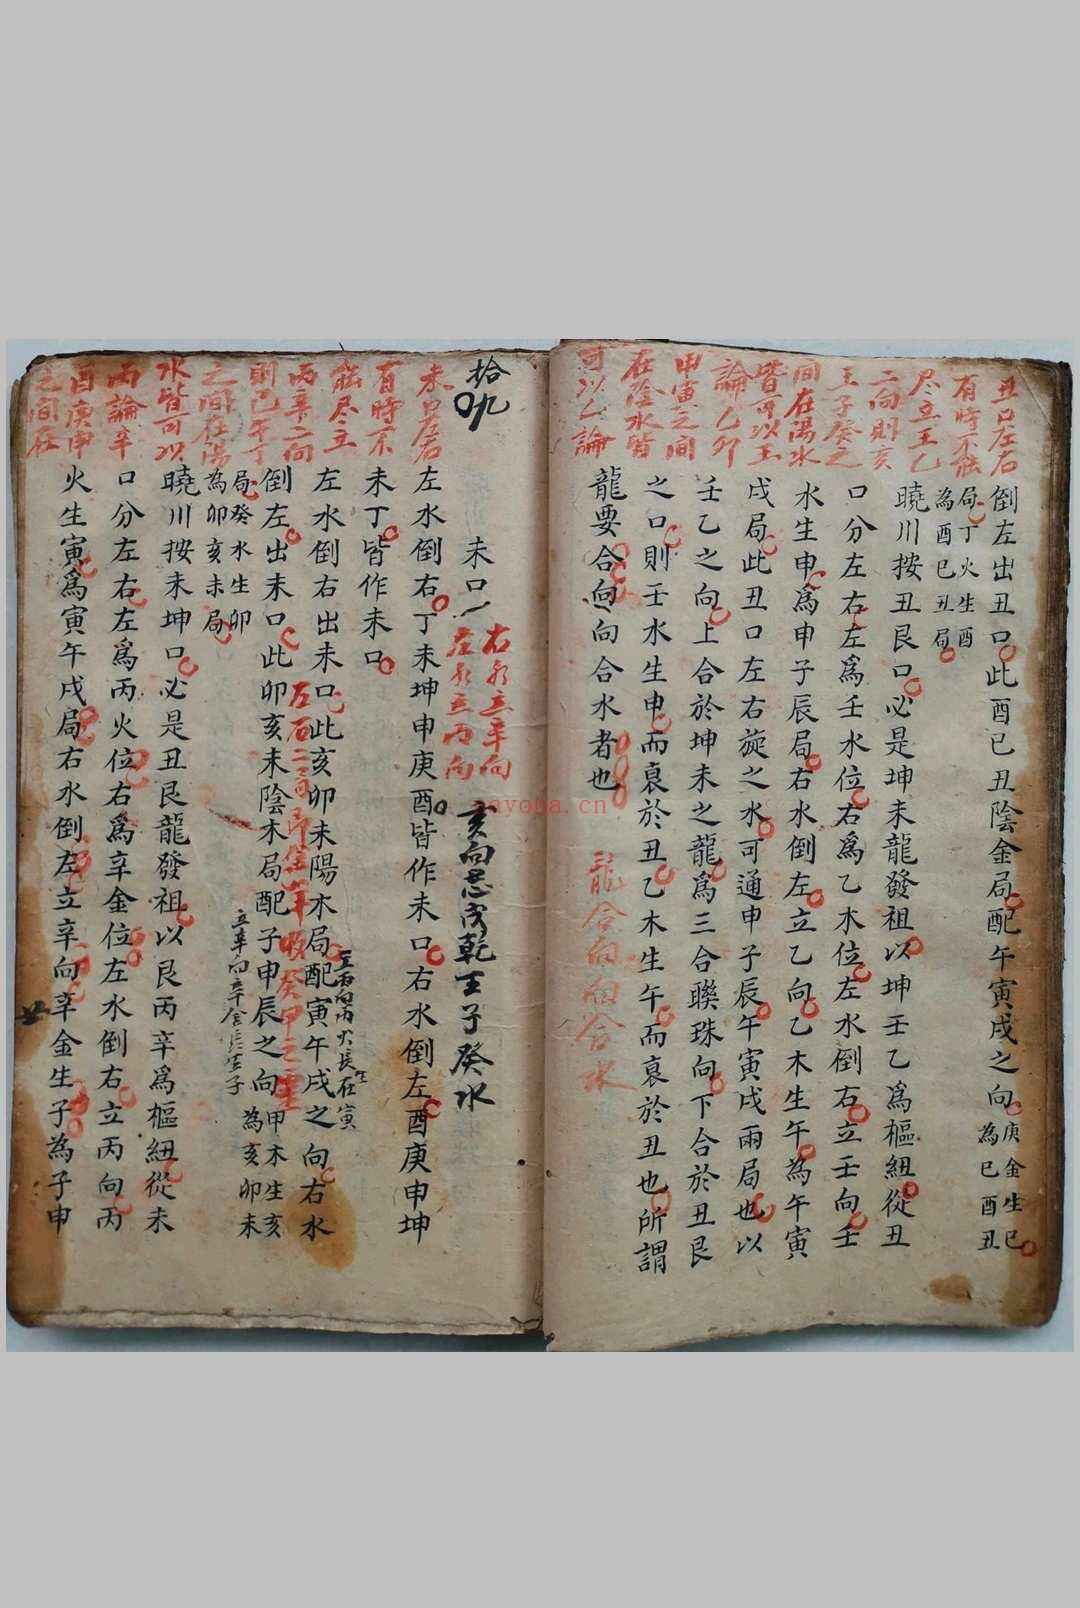 丑口左右
有時不能
尽立壬乙
二向則亥
壬子癸之
間在陽水
皆可以壬
論乙卯
甲寅之間
在陰水皆
可以乙論
倒左出丑口此酉巳丑陰金局配午寅戌之向庚金生巳
為巳酉丑
局丁火生酉
為酉巳丑局
曉川按丑艮口必是坤未龍發祖以坤壬乙爲樞紐從丑
口分左右左爲壬水位右爲乙木位左水倒右立壬向壬
水生申爲申子辰局右水倒左立乙向乙木生午為午寅
戌局此丑口左右旋之水可通申子辰午寅戌兩局也以
壬乙之向上合於坤未之龍爲三合聯珠向下合於丑艮
之口則壬水生申而衰於丑乙木生午而衰於丑也所謂
龍要合向向合水者也
龍合向向合水
拾九
未口
右水立辛向
左水立丙向
亥向忌戌乾壬子癸水
未口左右
有時不
能尽立
丙辛二向
則巳午丁
之間在陽
水皆可以
丙論辛
酉庚申
之間在
左水倒右丁未坤申庚酉皆作未口右水倒左酉庚申坤
未丁皆作未口
左水倒右出未口此亥卯未陽木局配寅午戌之向右水
立丙向丙火長生在寅
倒左出未口此卯亥未陰木局配子申辰之向甲木生亥
為亥卯未
立辛向辛金長生子
局癸水生卯
為卯亥未局
曉川按未坤口必是丑艮龍發祖以艮丙辛爲樞紐從未
口分左右左爲丙火位右爲辛金位左水倒右立丙向丙
火生寅爲寅午戌局右水倒左立辛向辛金生子為子申
廿
nayona.cn